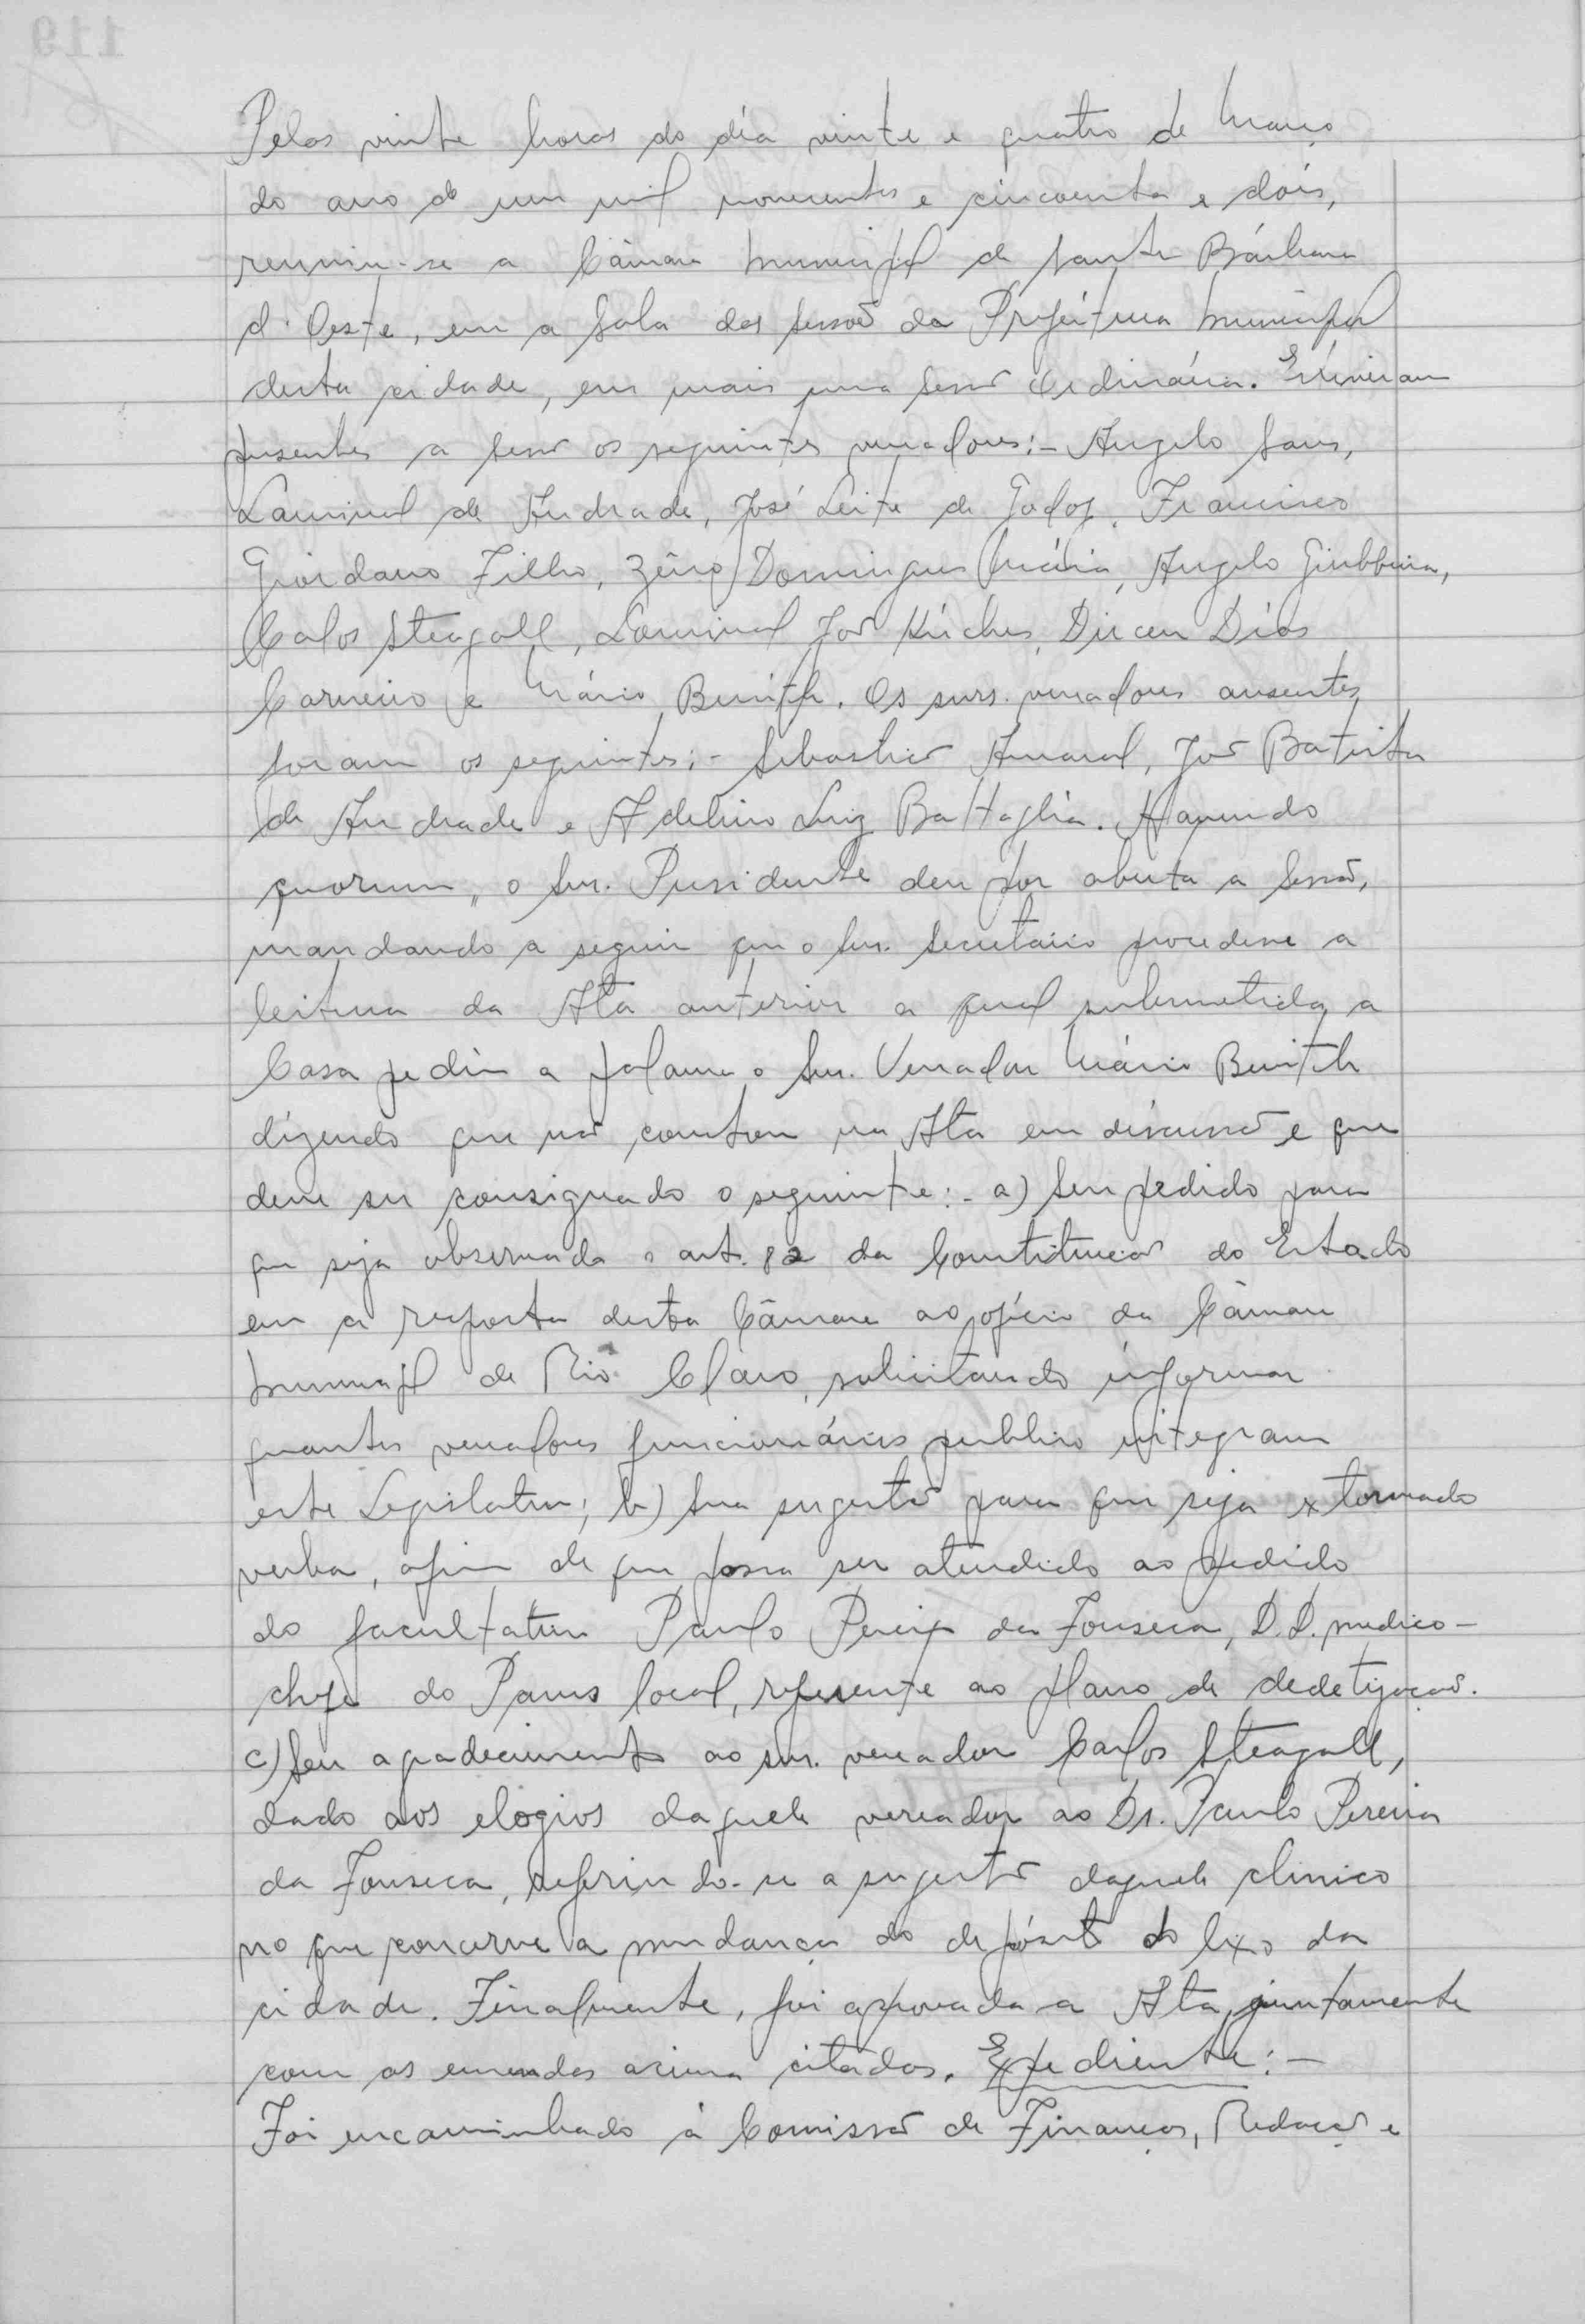 Pelas vinte horas do dia vinte e quatro de Março
do ano de um mil novecentos e cincoenta e dois,
reuniu-se a Câmara Municipal de Santa Bárbara
d'Oeste, em a Sala das Sessões da Prefeitura Municipal
desta cidade, em mais uma Sessão Ordinária. Estiveram
presentes a Sessão os seguintes vereadores:- Angelo Sans,
Lourival de Andrade, José Leite de Godoy, Francisco
Giordano Filho, Zêno Domingues Maia, Angelo Giubbina,
Carlos Steagall, Dirceu Dias
Carneiro e Mário Benith. Os snrs. vereadores ausentes
foram os seguintes:- Sebastião Amaral, João Batista
de Andrade e Adelino Luiz Battaglia. Havendo
quorum, o Snr. Presidente deu por aberta a Sessão,
mandando a seguir que o Snr. Secretário procedesse a
leitura da Ata anterior a qual submetida a
Casa pediu a palavra o Snr. Vereador Mário Benith
dizendo que não constou na Ata em discussão e que
deve ser consignado o seguinte:- a) Seu pedido para
que seja observado o art. 82 da Constituição do Estado
em a resposta desta Câmara ao ofício da Câmara
Municipal de Rio Claro, solicitando informar
quantos vereadores funcionários publico integram
este Legislativo; b) Sua sugestão para que seja extornado
verba, afim de que possa ser atendido ao pedido
do facultativo Paulo Pereira da Fonseca, D.D. medico-
chefe do Pams local, referente ao plano de dedetização.
c) Seu agradecimento ao snr. vereador Carlos Steagall,
dado aos elogios daquele vereador ao Dr. Paulo Pereira
da Fonseca, referindo-se a sugestão daquele clinico
no que concerne a mudança do depósito do lixo da
cidade. Finalmente, foi aprovada a Ata, juntamente
com as emendas acima citadas. Expediente:-
Foi encaminhado à Comissão de Finanças, Redação e